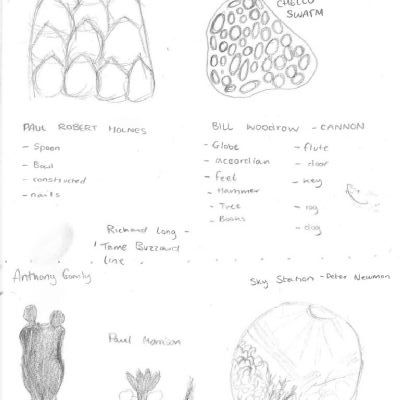 CHELLO
SWARM
PAUL ROBERT HOLMES
- Spoon
- Bowl
- constructed
- nails
BILL WOODROW - CANNON
- Globe
- Accordian
- feel
- Hammer
- Tree
- Books
- flute
- door
- key
- rag
- dog
Richard Long -
'Tame Buzzard
line
Anthony Gomly
Sky Station - Peter Newman
Paul Morrison